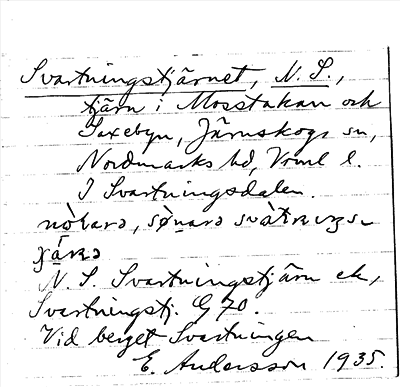 Svartningstjärnet, N. S.,
tjärn i Mosstakan och
Saxebyn, Järnskogs sn,
Nordmarks hd, Vrml l.
I Svartningsdalen.
N. S. Svartningstjärn ek,
Svartningstj. G 70.
Vid berget Svartningen
E. Andersson 1935.